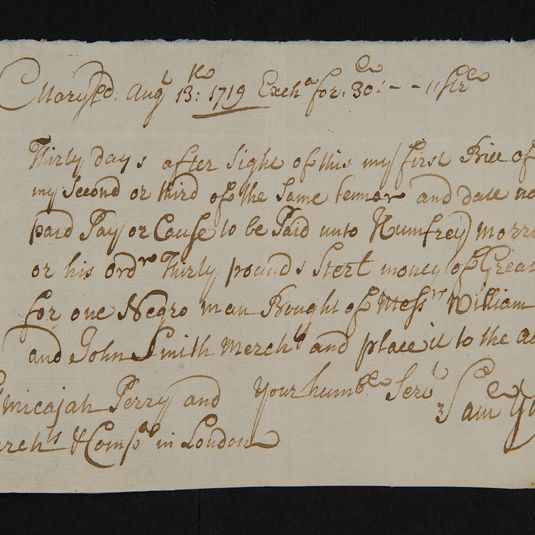 Maryld: Augt 13th: 1719 Excha for: 30: - - "Ster
Thirty days after Sight of this my first Bill of
my Second or third of the Same tennor and date no
paid Pay or Cause to be Paid unto Humfrey Morri
or his ordr Thirty pounds Sterl money of Great
for one Negro man Bought of Messrs William
and John Smith Merchts and place it to the a
Micajah Perry and Your humble Servt
rchts & Compa in London Sam